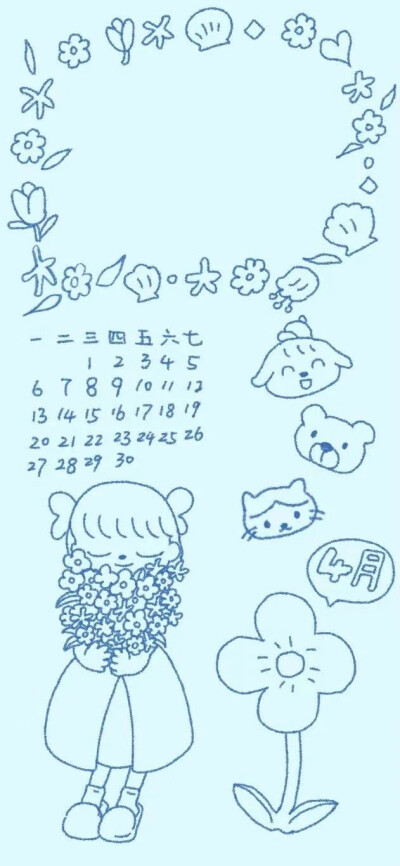 一 二 三 四 五 六 七
1 2 3 4 5
6 7 8 9 10 11 12
13 14 15 16 17 18 19
20 21 22 23 24 25 26
27 28 29 30
4月